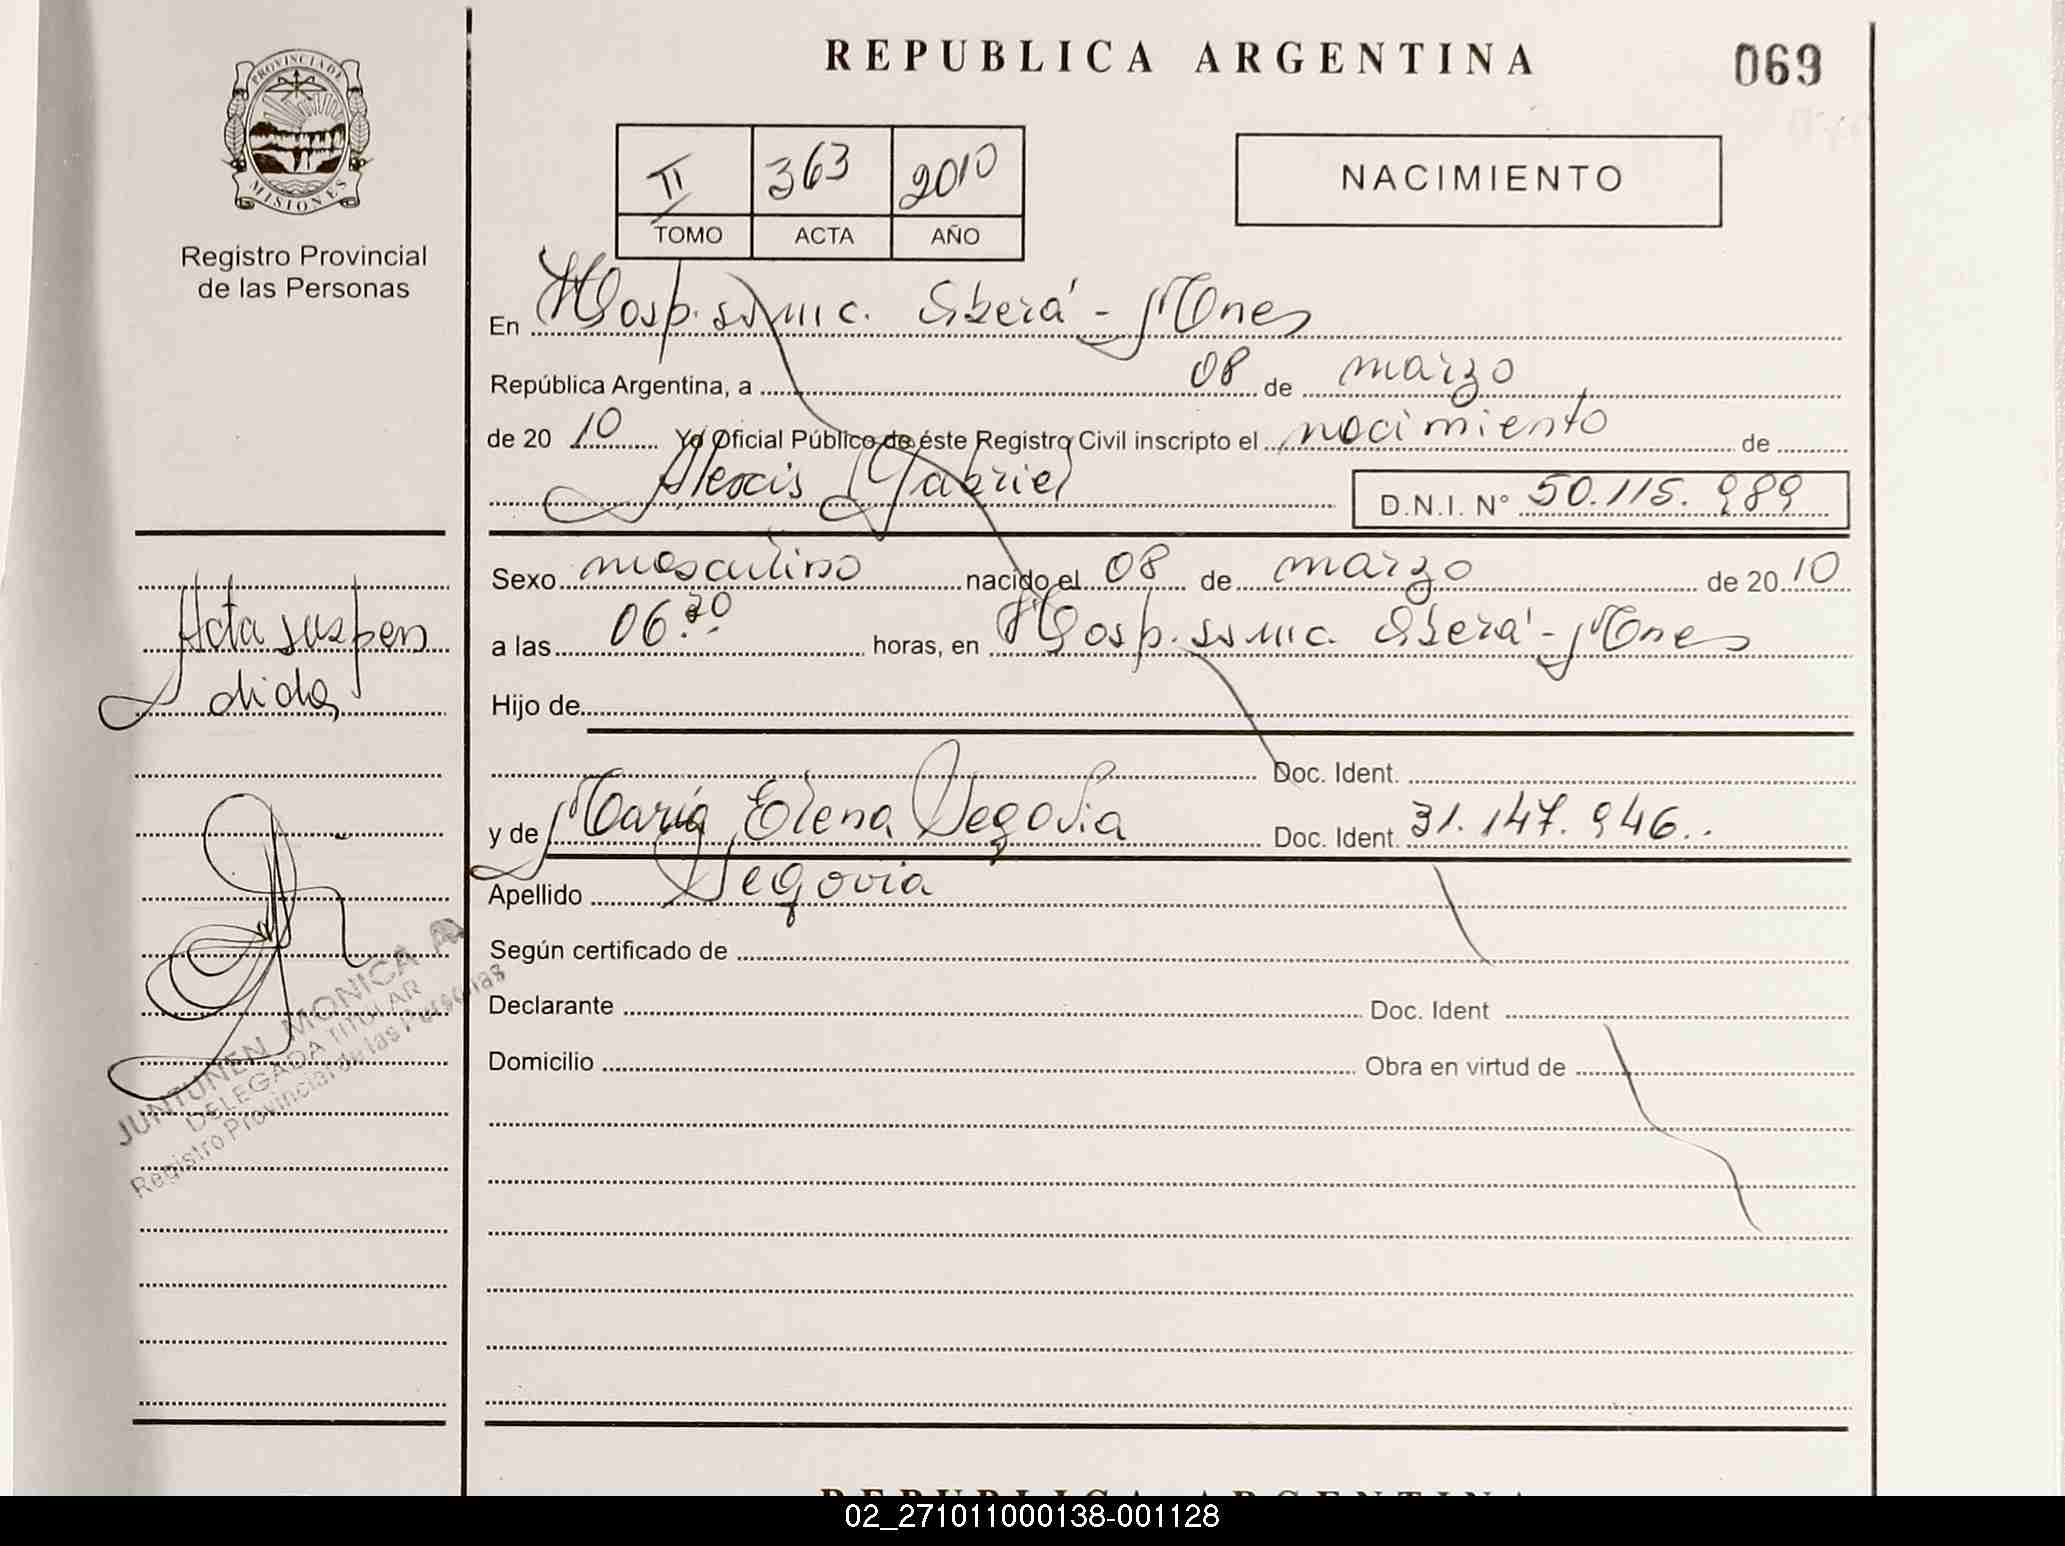 REPUBLICA ARGENTINA
069
PROVINCIA DE MISIONES
Registro Provincial
de las Personas
II 363 2010
TOMO ACTA AÑO
NACIMIENTO
En Hosp. ssmic. Oberá - Mnes
República Argentina, a 08 de marzo
de 20 10 Yo Oficial Público de éste Registro Civil inscripto el nacimiento de
Alexis Gabriel D.N.I. N° 50.115.989
Sexo masculino nacido el 08 de marzo de 20 10
a las 06.20 horas, en Hosp. ssmic. Oberá - Mnes
Hijo de
Doc. Ident.
y de María Elena Segovia Doc. Ident. 31.147.946..
Apellido Segovia
Según certificado de
Declarante Doc. Ident
Domicilio Obra en virtud de
Acta suspen
dida
JUNTUNEN MONICA A
DELEGADA TITULAR
Registro Provincial de las Personas
REPUBLICA ARGENTINA
02_271011000138-001128